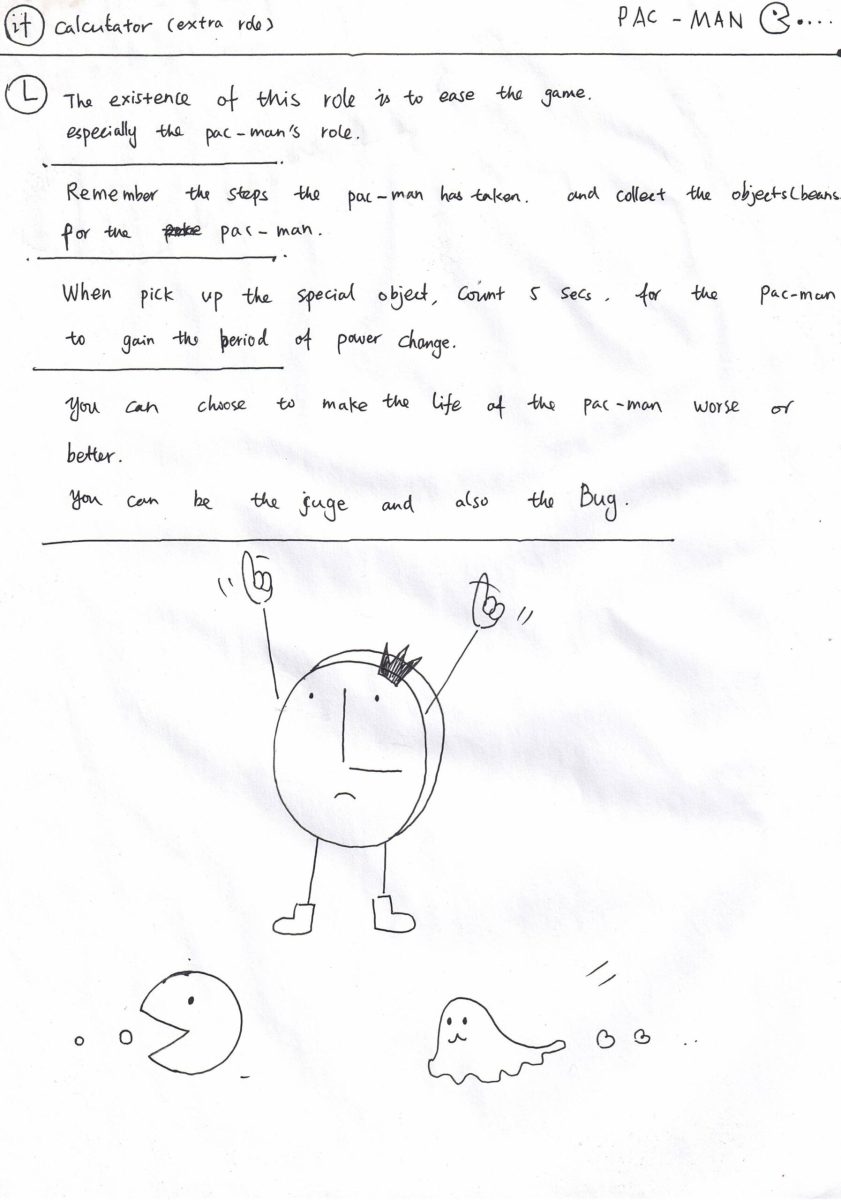 it calculator (extra role)
PAC - MAN ....
The existence of this role is to ease the game.
especially the pac-man's role.
Remember the steps the pac-man has taken. and collect the objects(beans
for the pac-man.
When pick up the special object, Count 5 secs. for the Pac-man
to gain the period of power change.
You can choose to make the life of the pac-man worse or
better.
You can be the juge and also the Bug.